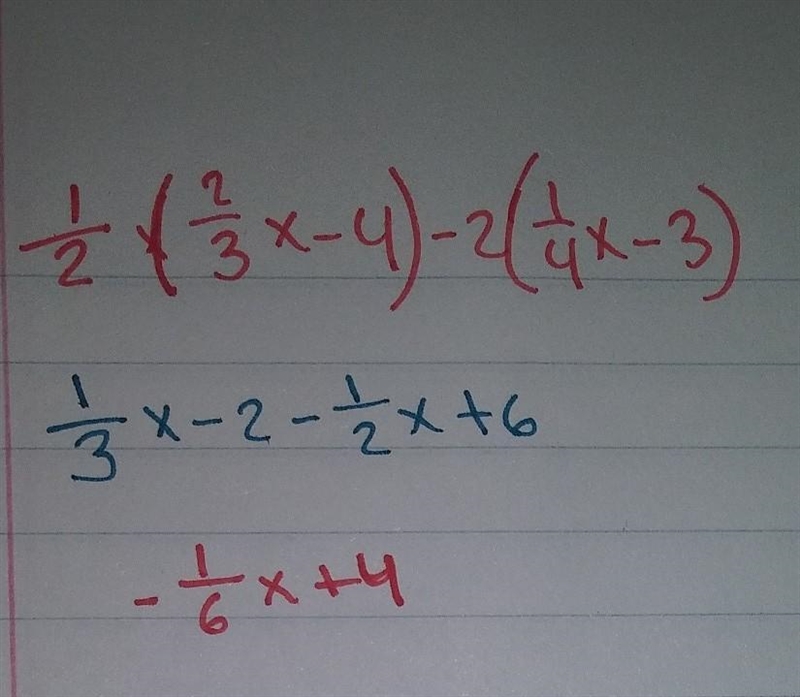 1/2 (2/3 x - 4) - 2(1/4 x - 3)
1/3 x - 2 - 1/2 x + 6
- 1/6 x + 4